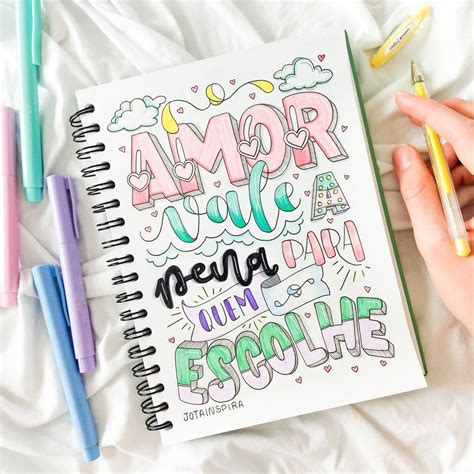 AMOR
vale A
pena PARA
QUEM
ESCOLHE
JOTAINSPIRA